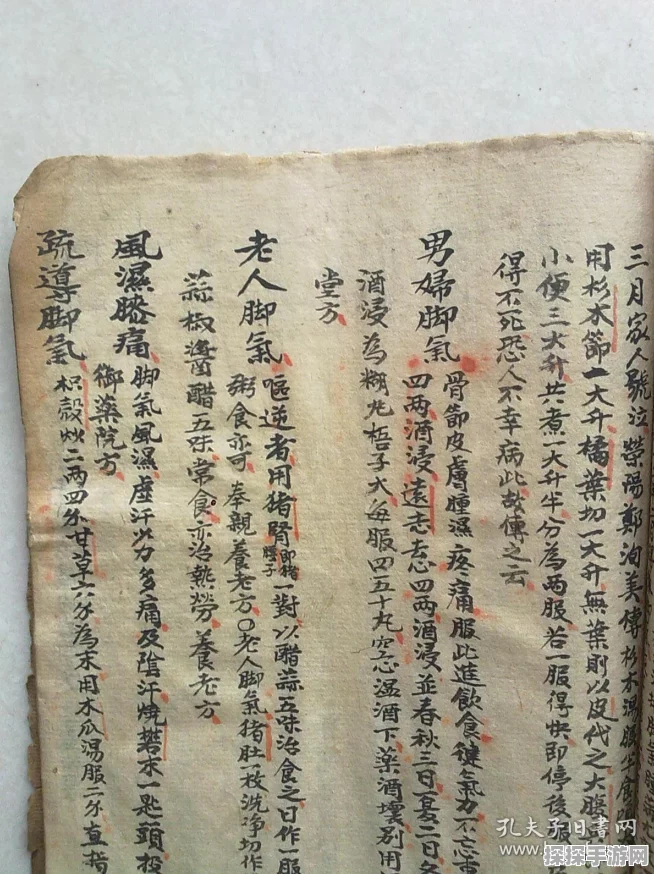 三月家人號泣滎陽鄭洵美傳杉木湯服半食頃
用杉木節一大升橘葉切一大升無葉則以皮代之大腹
小便三大升共煮一大升半分為兩服若一服得快即停後服
得不死恐人不幸病此故傳之云
男婦脚氣 骨節皮膚腫濕疼痛服此進飲食健氣力不忘
四兩酒浸遠志去心四兩酒浸並春秋三日夏二日冬
酒浸為糊丸梧子大每服四五十丸空心温酒下薬酒壞別用
堂方
老人脚氣 嘔逆者用猪腎即猪腰子一對以醋蒜五味治食之日作一服
粥食亦可 奉親養老方〇老人脚氣猪肚一枚洗净切作
蒜椒醬醋五味常食亦治熱勞 養老方
風濕膝痛 脚氣風濕虚汗少力多痛及陰汗燒礬末一匙頭投
御薬院方
疏導脚氣 枳殻炒二兩四分甘草六分為末用木瓜湯服二分直指
孔夫子旧書网
探探手游网